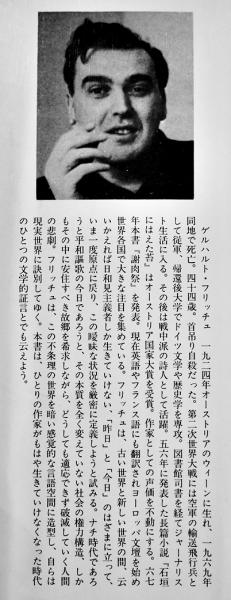 ゲルハルト・フリッチュ 一九二四年オーストリアのウィーンに生れ、一九六九年
同地で死亡。四十四歳。首吊り自殺だった。第二次世界大戦には空軍の輸送飛行兵と
して従軍、帰還後大学でドイツ文学・歴史学を専攻、図書館司書を経てジャーナリス
ト生活に入る。その後は戦中派の詩人として活躍。五六年に発表した長篇小説「石垣
にはえた苔」はオーストリア国家大賞を受賞。作家としての声価を不動にする。六七
年本書『謝肉祭』を発表。現在英語やフランス語にも翻訳されヨーロッパ文壇を始め
世界各国で大きな注目を集めている。フリッチュは、古い世界と新しい世界の間、云
いかえれば日和見主義者しか生きていけない、「昨日」と「今日」のはざまに立って、
いま一度原点に戻り、この曖昧な状況を厳密に定義しようと試みる。ナチ時代であろ
うと平和謳歌の今日であろうと、その本質を全く変えていない社会の権力構造、しか
もその中に安住すべき故郷を希求しながら、どうしても適応できず破滅していく人間
の悲劇。フリッチュは、この不条理の世界を暗い感覚的な言語空間に造型し、自らは
現実世界に訣別してゆく。本書は、ひとりの作家がもはや生きていけなくなった時代
のひとつの文学的証言とでも云えよう。